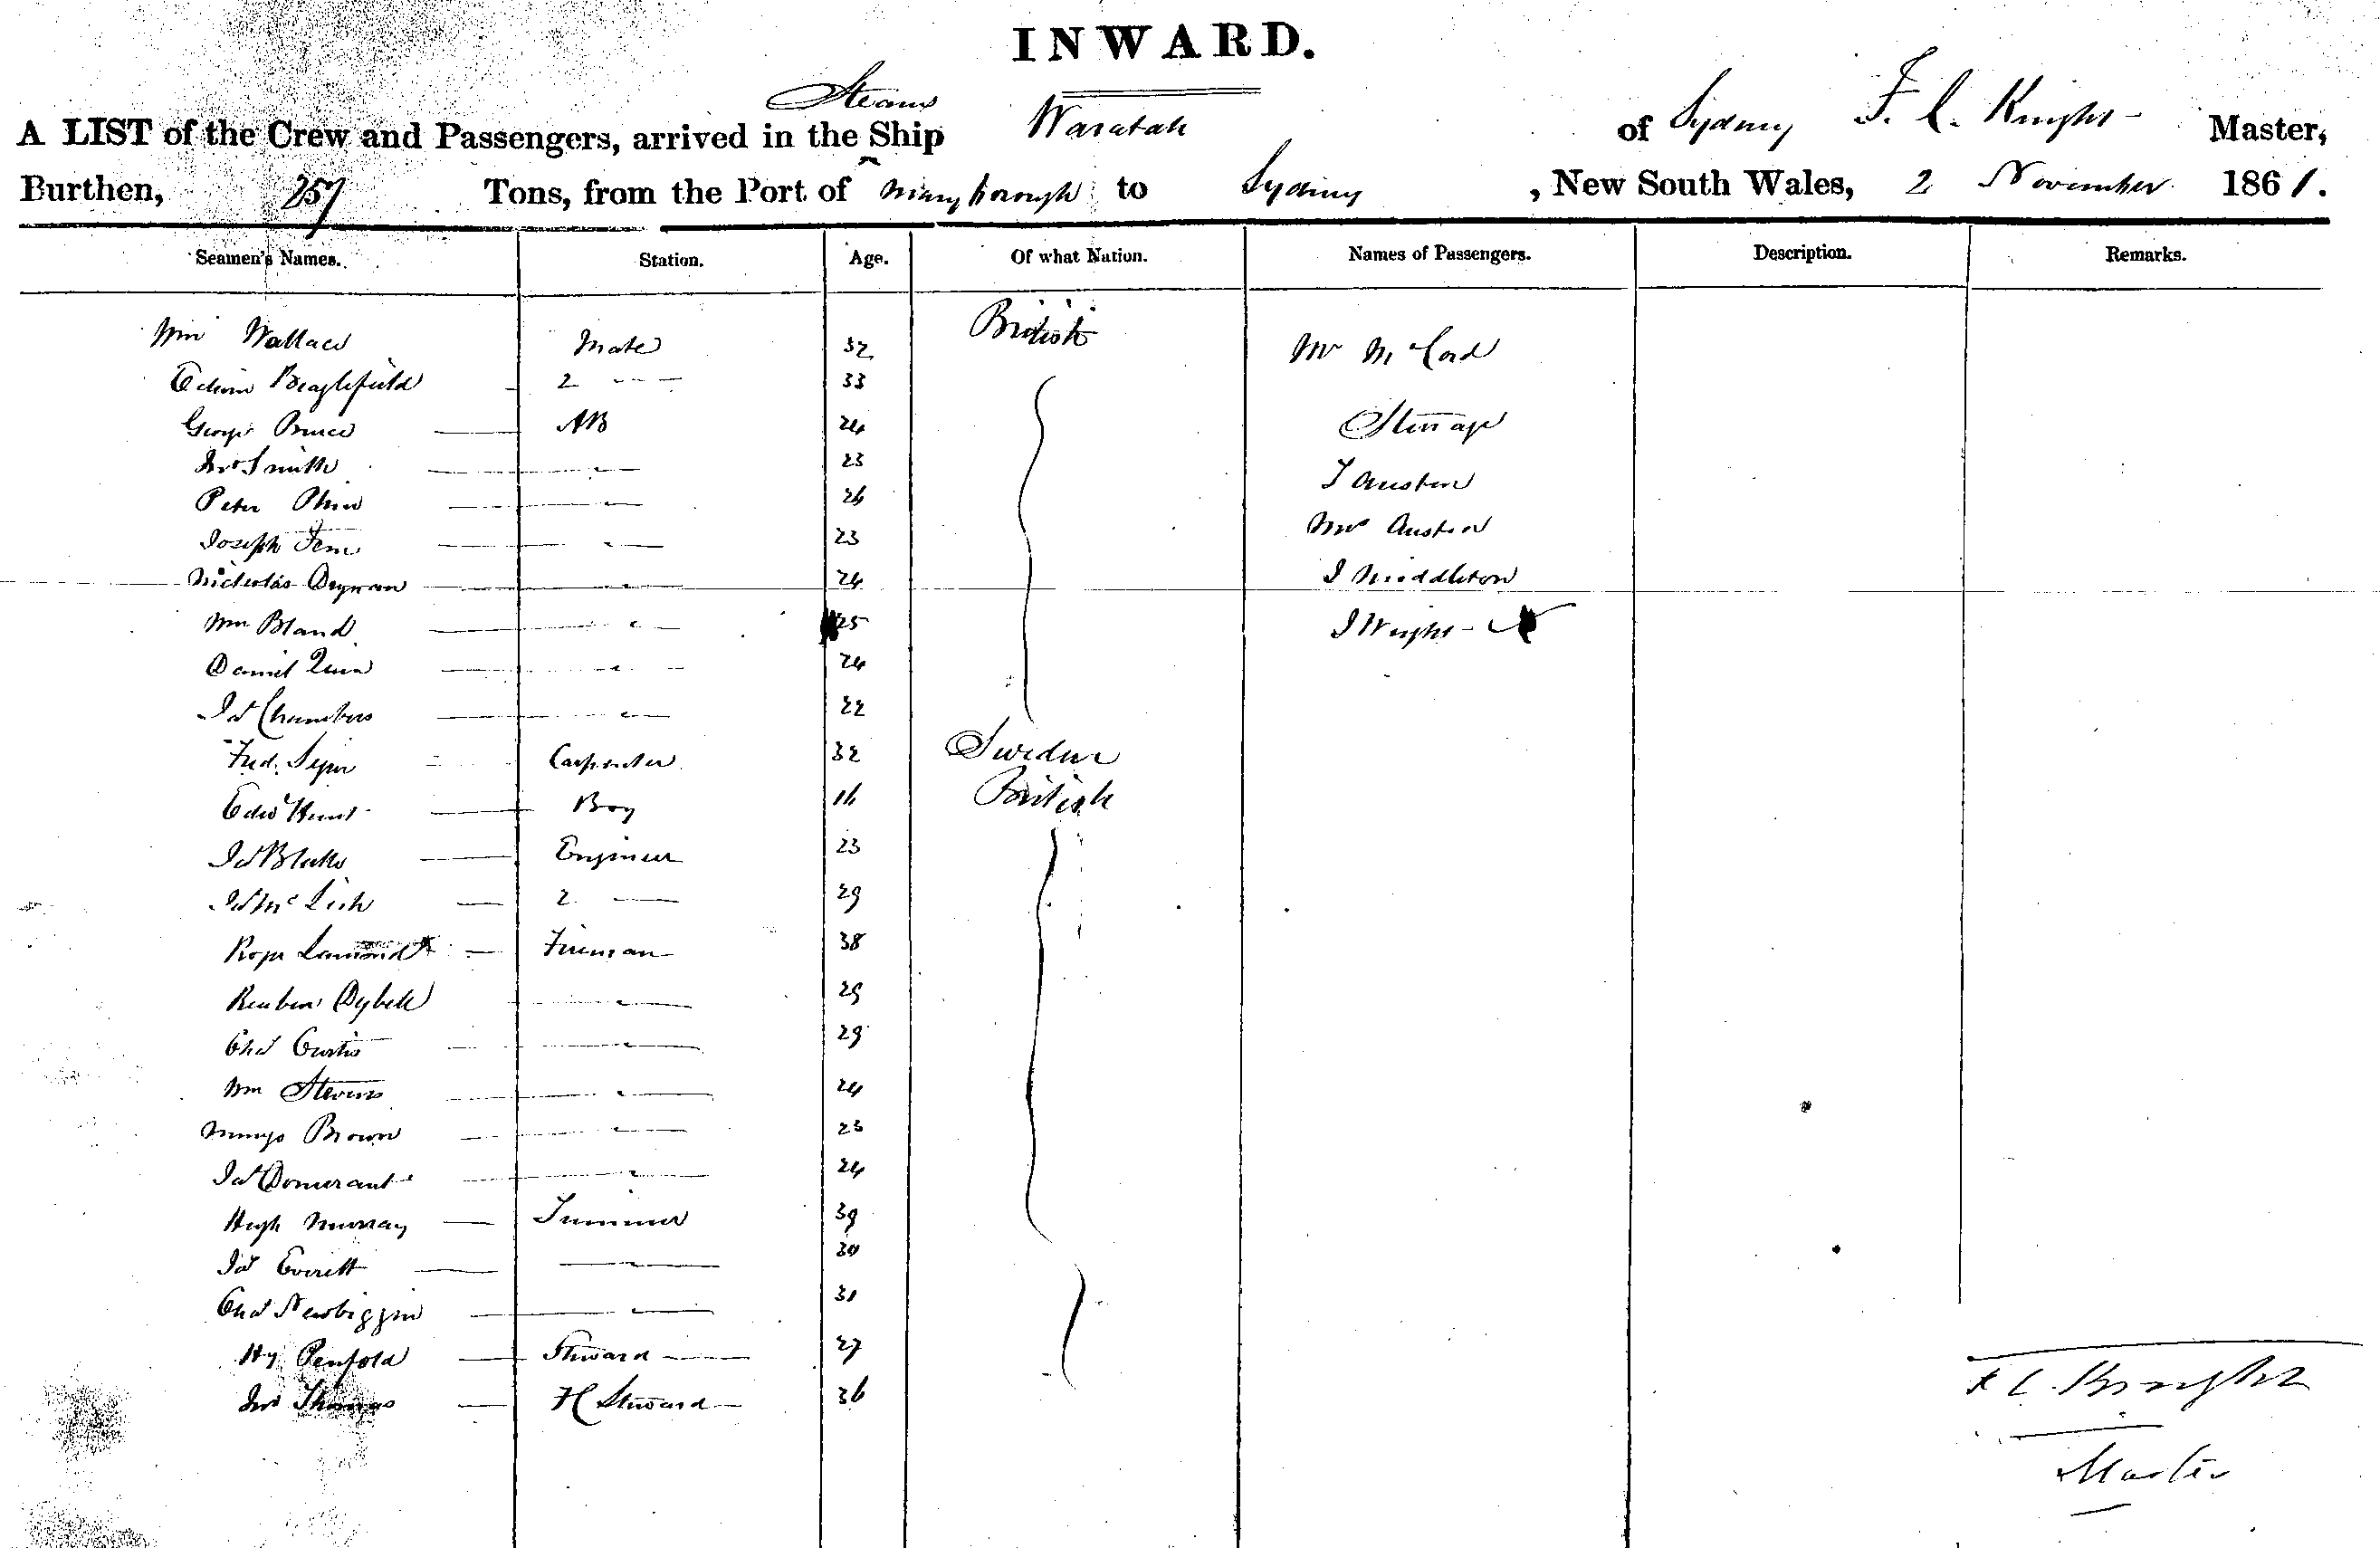 INWARD.
A LIST of the Crew and Passengers, arrived in the Steam Ship Waratah of Sydney F. C. Knight Master,
Burthen, 257 Tons, from the Port of Maryborough to Sydney, New South Wales, 2 November 1861.
Seamen's Names. Station. Age. Of what Nation. Names of Passengers. Description. Remarks.
Wm Wallace Mate 32 British Mr McCord
Edwin 2 33
George Bruce AB 24 Steerage
Jno Smith " 23 T Austin
Peter " 26
Joseph " 23 Mrs Austin
Nicholas " 24 J Middleton
Wm Bland " 25 J Wright
Daniel Quin " 24
Jas Chambers " 22
Fred. Carpenter 32 Sweden
Edwd Hunt Boy 16 British
Jas Blake Engineer 23
Jas Mc 2 29
Roger Lamond Fireman 38
Reuben " 29
Chas Curtis " 29
Wm Stevens " 24
Mungo Brown " 23
Jas " 24
Hugh Murray Trimmer 39
Jas Everett " 30
Chas Newbiggin " 31
Hy Penfold Steward 27
Jno Thomas Steward 36
F C. Knight
Master